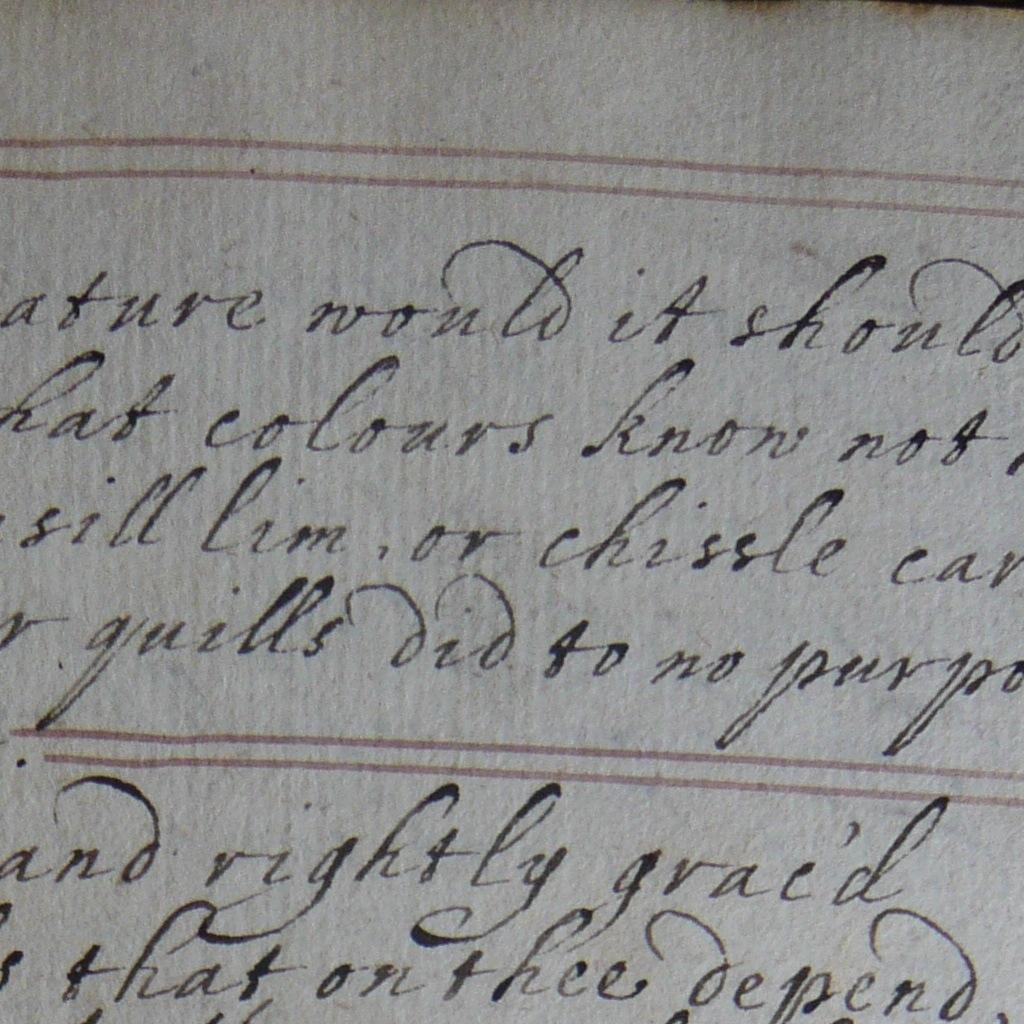 ature would it should
hat colours know not
sill lim, or chissle car
r quills did to no purpo
and rightly grac'd
s that on thee depend,